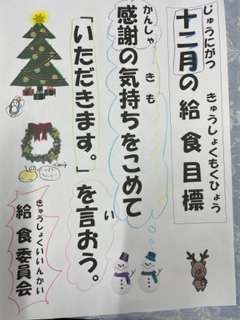 じゅうにがつ きゅうしょくもくひょう
十二月の給食目標
かんしゃ きも
感謝の気持ちをこめて
い
「いただきます。」を言おう。
きゅうしょくいいんかい
給食委員会